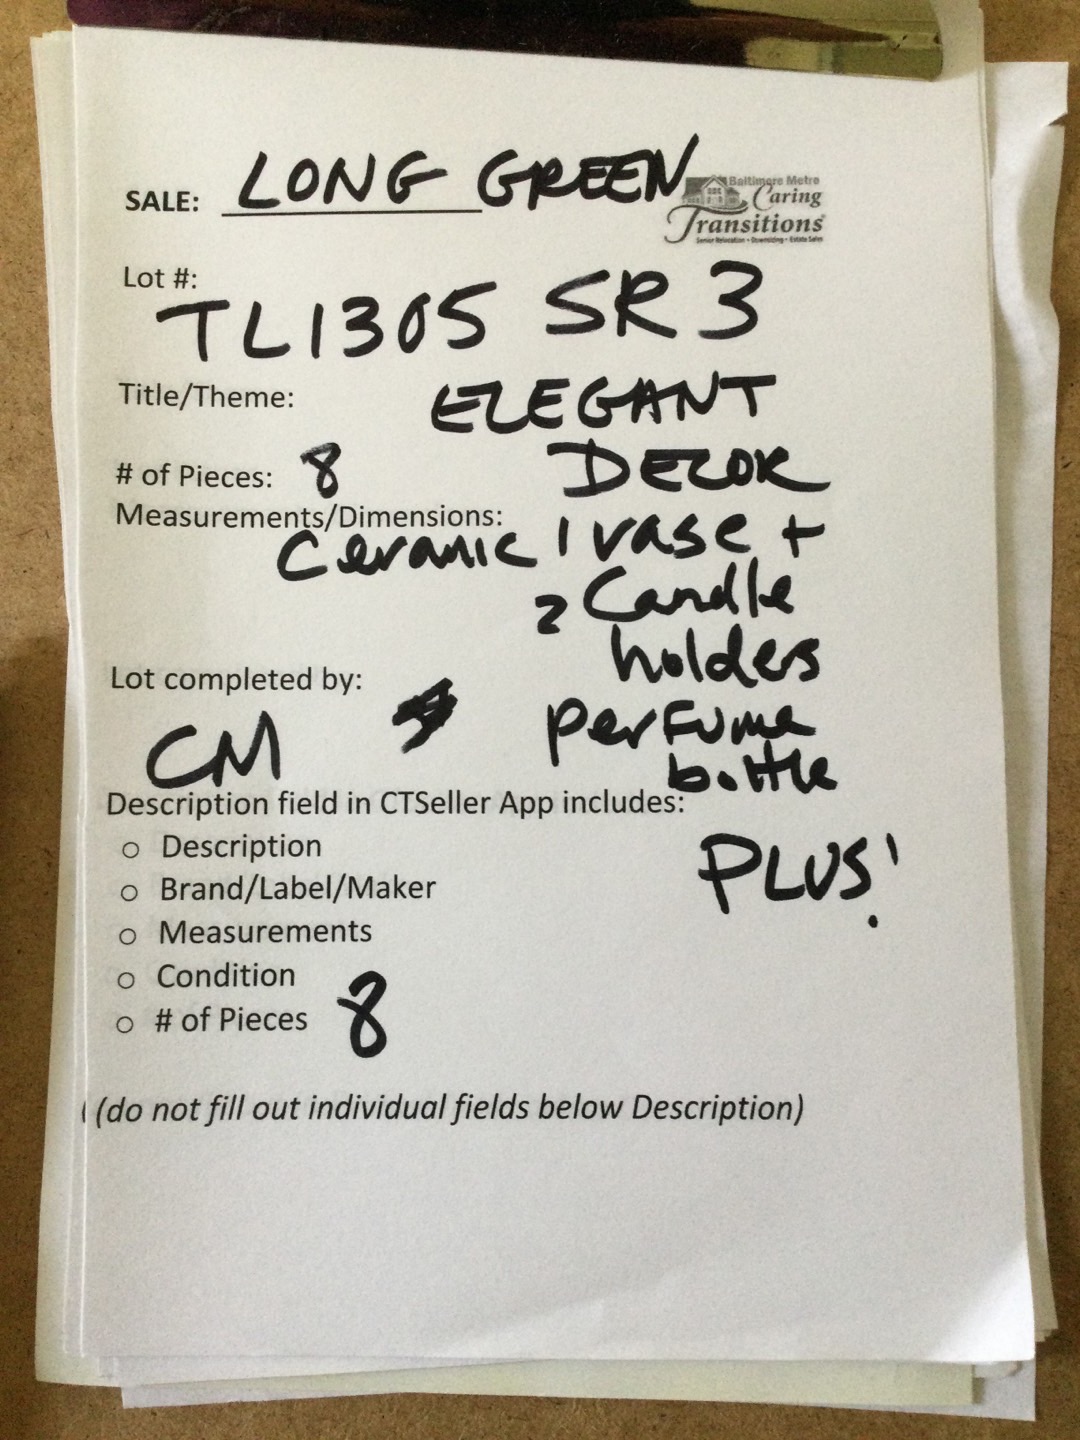 SALE: LONG GREEN
Baltimore Metro
Caring
Transitions
Senior Relocation • Downsizing • Estate Sales
Lot #:
TL1305 SR 3
Title/Theme: ELEGANT
DECOR
# of Pieces: 8
Measurements/Dimensions:
Ceramic 1 vase +
2 Candle
holders
Lot completed by:
perfume
bottle
CM
Description field in CTSeller App includes:
○ Description
PLUS!
○ Brand/Label/Maker
○ Measurements
○ Condition
○ # of Pieces 8
(do not fill out individual fields below Description)